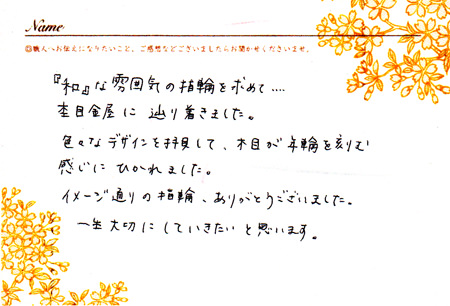 Name
◎職人へお伝えになりたいこと、ご感想などございましたらお聞かせくださいませ。
『和』な雰囲気の指輪を求めて....
杢目金屋に辿り着きました。
色々なデザインを拝見して、木目が年輪を刻む
感じにひかれました。
イメージ通りの指輪、ありがとうございました。
一生大切にしていきたいと思います。